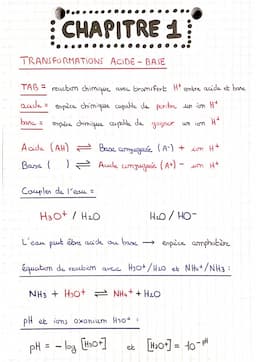 CHAPITRE 1
TRANSFORMATIONS ACIDE - BASE
TAB = réaction chimique avec transfert H⁺ entre acide et base
acide = espèce chimique capable de perdre un ion H⁺
base = espèce chimique capable de gagner un ion H⁺
Acide (AH) ⇌ Base conjuguée (A⁻) + ion H⁺
Base ( ) ⇌ Acide conjuguée (A⁺) - ion H⁺
Couples de l'eau =
H3O⁺ / H2O H2O / HO⁻
L'eau peut être acide ou base → espèce amphotère
Équation de réaction avec H3O⁺/H2O et NH4⁺/NH3 :
NH3 + H3O⁺ ⇌ NH4⁺ + H2O
pH et ions oxonium H3O⁺ :
pH = - log [H3O⁺] et [H3O⁺] = 10⁻ᵖᴴ